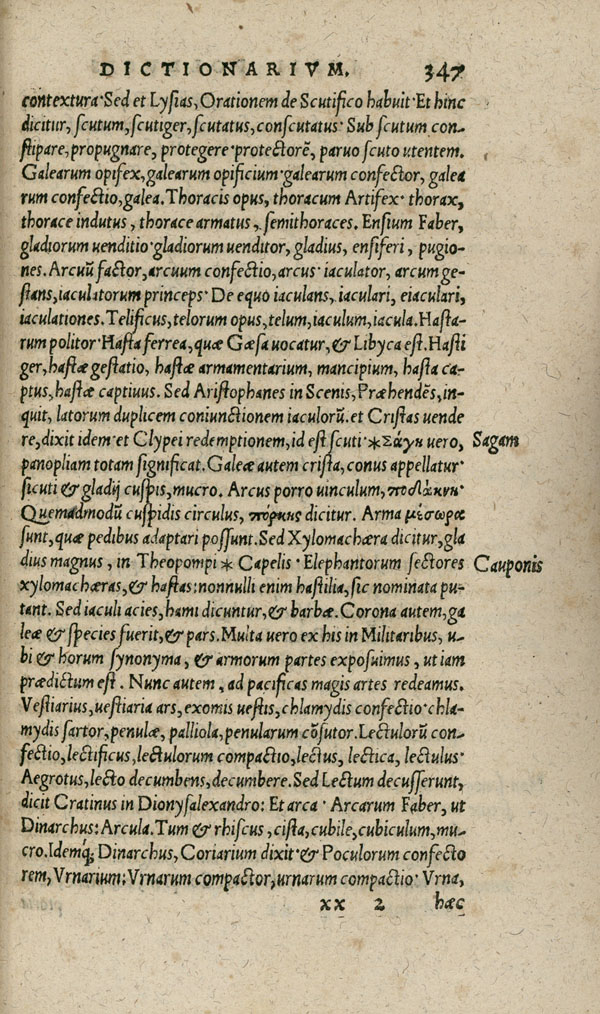 DICTIONARIVM. 347
contextura· Sed et Lysias, Orationem de Scutifico habuit· Et hinc
dicitur, scutum, scutiger, scutatus, conscutatus· Sub scutum con-
stipare, propugnare, protegere· protectorē, paruo scuto utentem.
Galearum opifex, galearum opificium· galearum confector, galea
rum confectio, galea. Thoracis opus, thoracum Artifex· thorax,
thorace indutus, thorace armatus, semithoraces. Ensium Faber,
gladiorum uenditio· gladiorum uenditor, gladius, ensiferi, pugio-
nes. Arcuū factor, arcuum confectio, arcus· iaculator, arcum ge-
stans, iaculatorum princeps· De equo iaculans, iaculari, eiaculari,
iaculationes. Telificus, telorum opus, telum, iaculum, iacula. Hasta-
rum politor· Hasta ferrea, quæ Gæsa uocatur, & Libyca est. Hasti
ger, hastæ gestatio, hastæ armamentarium, mancipium, hasta ca-
ptus, hastæ captiuus. Sed Aristophanes in Scenis, Præhendēs, in-
quit, latorum duplicem coniunctionem iaculorū. et Cristas uende
re, dixit idem· et Clypei redemptionem, id est scuti· *Σάγη uero, Sagam
panopliam totam significat. Galeæ autem crista, conus appellatur·
sicuti & gladij cuspis, mucro. Arcus porro uinculum,
Quemadmodū cuspidis circulus, πόρκης dicitur. Arma μέσωρα
sunt, quæ pedibus adaptari possunt. Sed Xylomachæra dicitur, gla
dius magnus, in Theopompi * Capelis· Elephantorum sectores Cauponis
xylomachæras, & hastas: nonnulli enim hastilia, sic nominata pu-
tant. Sed iaculi acies, hami dicuntur, & barbæ. Corona autem, ga
leæ & species fuerit, & pars. Multa uero ex his in Militaribus, u-
bi & horum synonyma, & armorum partes exposuimus, ut iam
prædictum est. Nunc autem, ad pacificas magis artes redeamus.
Vestiarius, uestiaria ars, exomis uestis, chlamydis confectio· chla-
mydis sartor, penulæ, palliola, penularum cōsutor. Lectulorū con-
fectio, lectificus, lectulorum compactio, lectus, lectica, lectulus·
Aegrotus, lecto decumbens, decumbere. Sed Lectum decusserunt,
dicit Cratinus in Dionysalexandro: Et arca· Arcarum Faber, ut
Dinarchus: Arcula. Tum & rhiscus, cista, cubile, cubiculum, mu-
cro. Idemq; Dinarchus, Coriarium dixit· & Poculorum confecto
rem, Vrnarium: Vrnarum compactor, urnarum compactio· Vrna,
xx 2 hæc